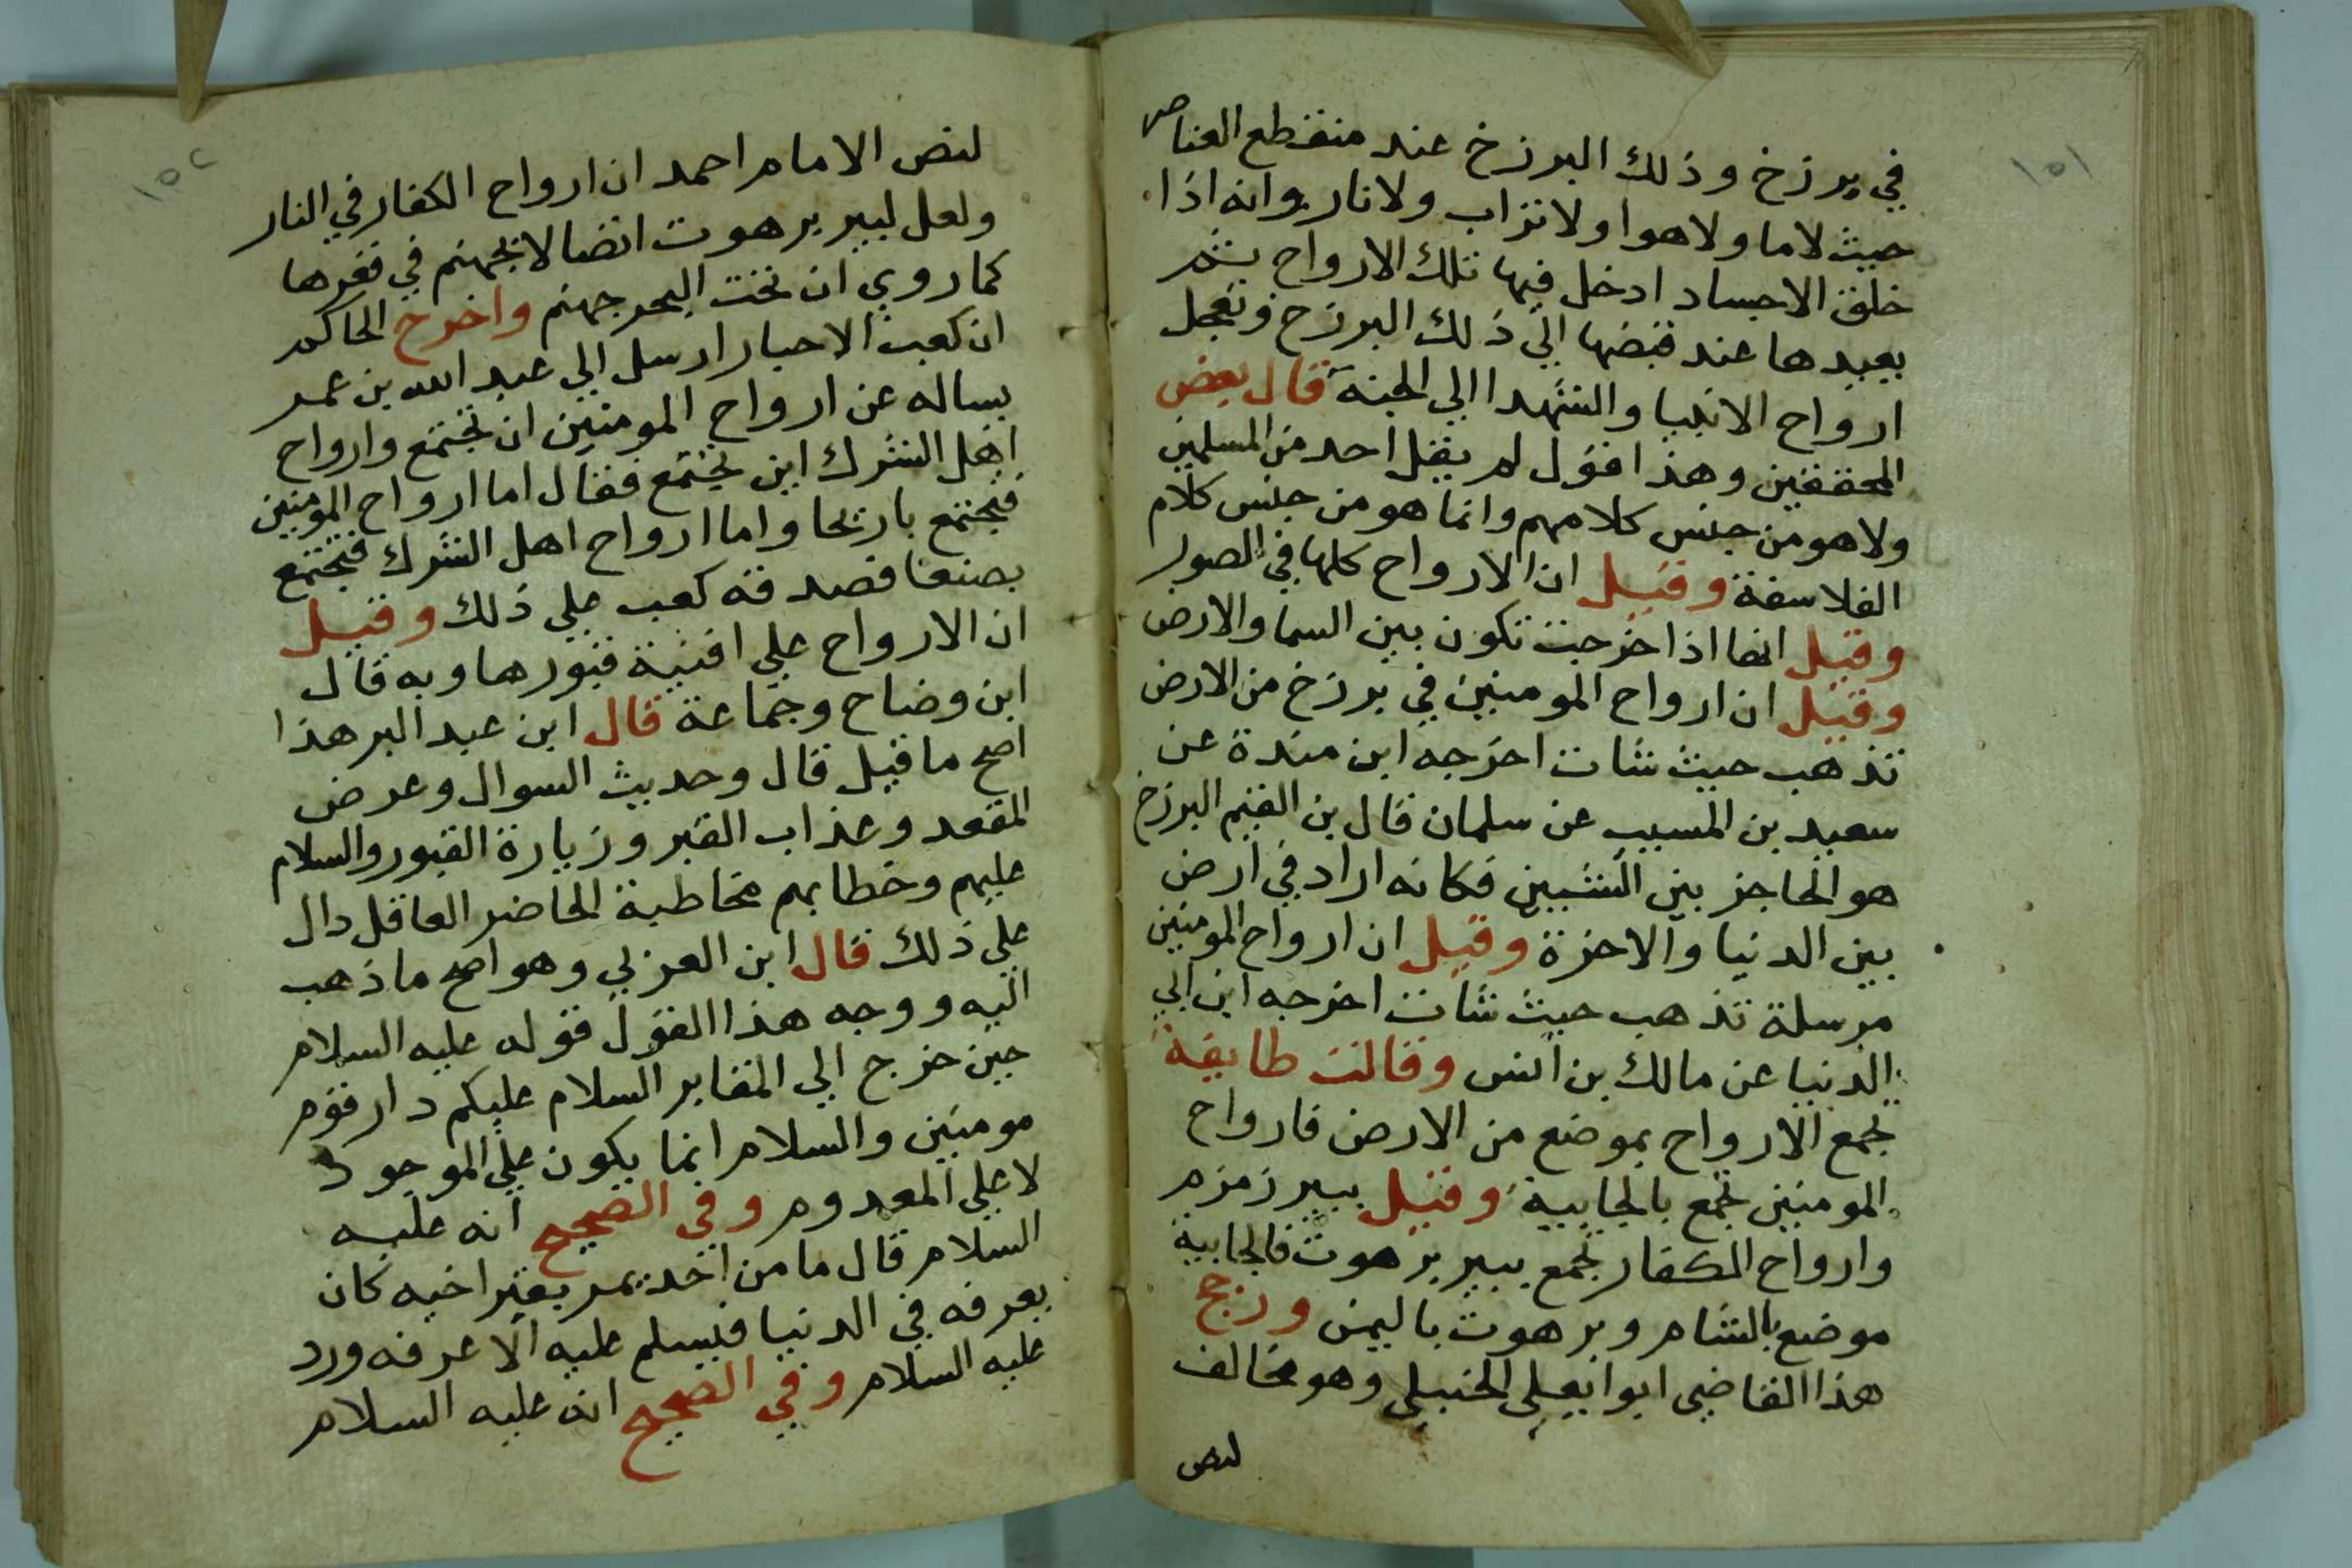 ١٥١
في برزخ وذلك البرزخ عند منقطع العناصر
حيث لاما ولاهوا ولاتراب ولانار وانه اذا
خلق الاجساد ادخل فيها تلك الارواح ثم
يعيدها عند قبضها الي ذلك البرزخ وتعجل
ارواح الانبيا والشهدا الي الجنة قال بعض
المحققين وهذا قول لم يقل احد من المسلمين
ولاهو من جنس كلامهم وانما هو من جنس كلام
الفلاسفة وقيل ان الارواح كلها في الصور
وقيل انها اذا خرجت تكون بين السما والارض
وقيل ان ارواح المومنين في برزخ من الارض
تذهب حيث شات اخرجه ابن مندة عن
سعيد بن المسيب عن سلمان قال بن القيم البرزخ
هو الحاجز بين الشيين فكانه اراد في ارض
بين الدنيا والاخرة وقيل ان ارواح المومنين
مرسلة تذهب حيث شات اخرجه ابن ابي
الدنيا عن مالك بن انس وقالت طايفة
تجمع الارواح بموضع من الارض فارواح
المومنين تجمع بالجابية وقيل ببير زمزم
وارواح الكفار تجمع ببير برهوت فالجابية
موضع بالشام وبرهوت باليمن ورجح
هذا القاضي ابوا يعلى الحنبلي وهو مخالف
لنص
١٥٢
لنص الامام احمد ان ارواح الكفار في النار
ولعل لبير برهوت اتصالا بجهنم في قعرها
كما روي ان تحت البحر جهنم واخرج الحاكم
ان كعب الاحبار ارسل الي عبد الله بن عمر
يساله عن ارواح المومنين ان تجتمع وارواح
اهل الشرك اين تجتمع فقال اما ارواح المومنين
فتجتمع باريحا واما ارواح اهل الشرك فتجتمع
بصنعا فصدقه كعب علي ذلك وقيل
ان الارواح علي افنية قبورها وبه قال
ابن وضاح وجماعة قال ابن عبد البر هذا
اصح ما قيل قال وحديث السوال وعرض
المقعد وعذاب القبر وزيارة القبور والسلام
عليهم وخطابهم مخاطبة الحاضر العاقل دال
علي ذلك قال ابن العزبي وهو اصح ما ذهب
اليه ووجه هذا القول قوله عليه السلام
حين خرج الي المقابر السلام عليكم دار قوم
مومنين والسلام انما يكون علي الموجود
لا علي المعدوم وفي الصحيح انه عليه
السلام قال ما من احد يمر بقبر اخيه كان
يعرفه في الدنيا فيسلم عليه الا عرفه ورد
عليه السلام وفي الصحيح انه عليه السلام